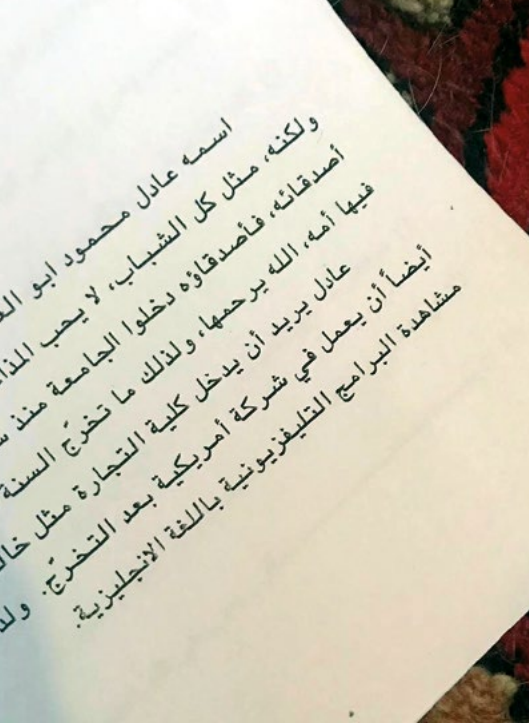 اسمه عادل محمود ابو
ولكنه، مثل كل الشباب، لا يحب
أصدقائه، فأصدقاؤه دخلوا الجامعة منذ
فيها أمه، الله يرحمها، ولذلك ما تخرّج السنة
عادل يريد أن يدخل كلية التجارة مثل
أيضاً أن يعمل في شركة أمريكية بعد التخرّج.
مشاهدة البرامج التليفزيونية باللغة الانجليزية.